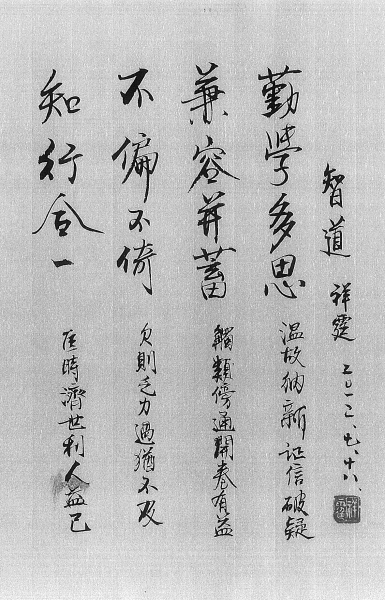 智道 祥霆 二〇一二、七、十八、
勤學多思 溫故納新証信破疑
兼容并蓄 觸類傍通開卷有益
不偏不倚 欠則乏力過猶不及
知行合一 匡時濟世利人益己